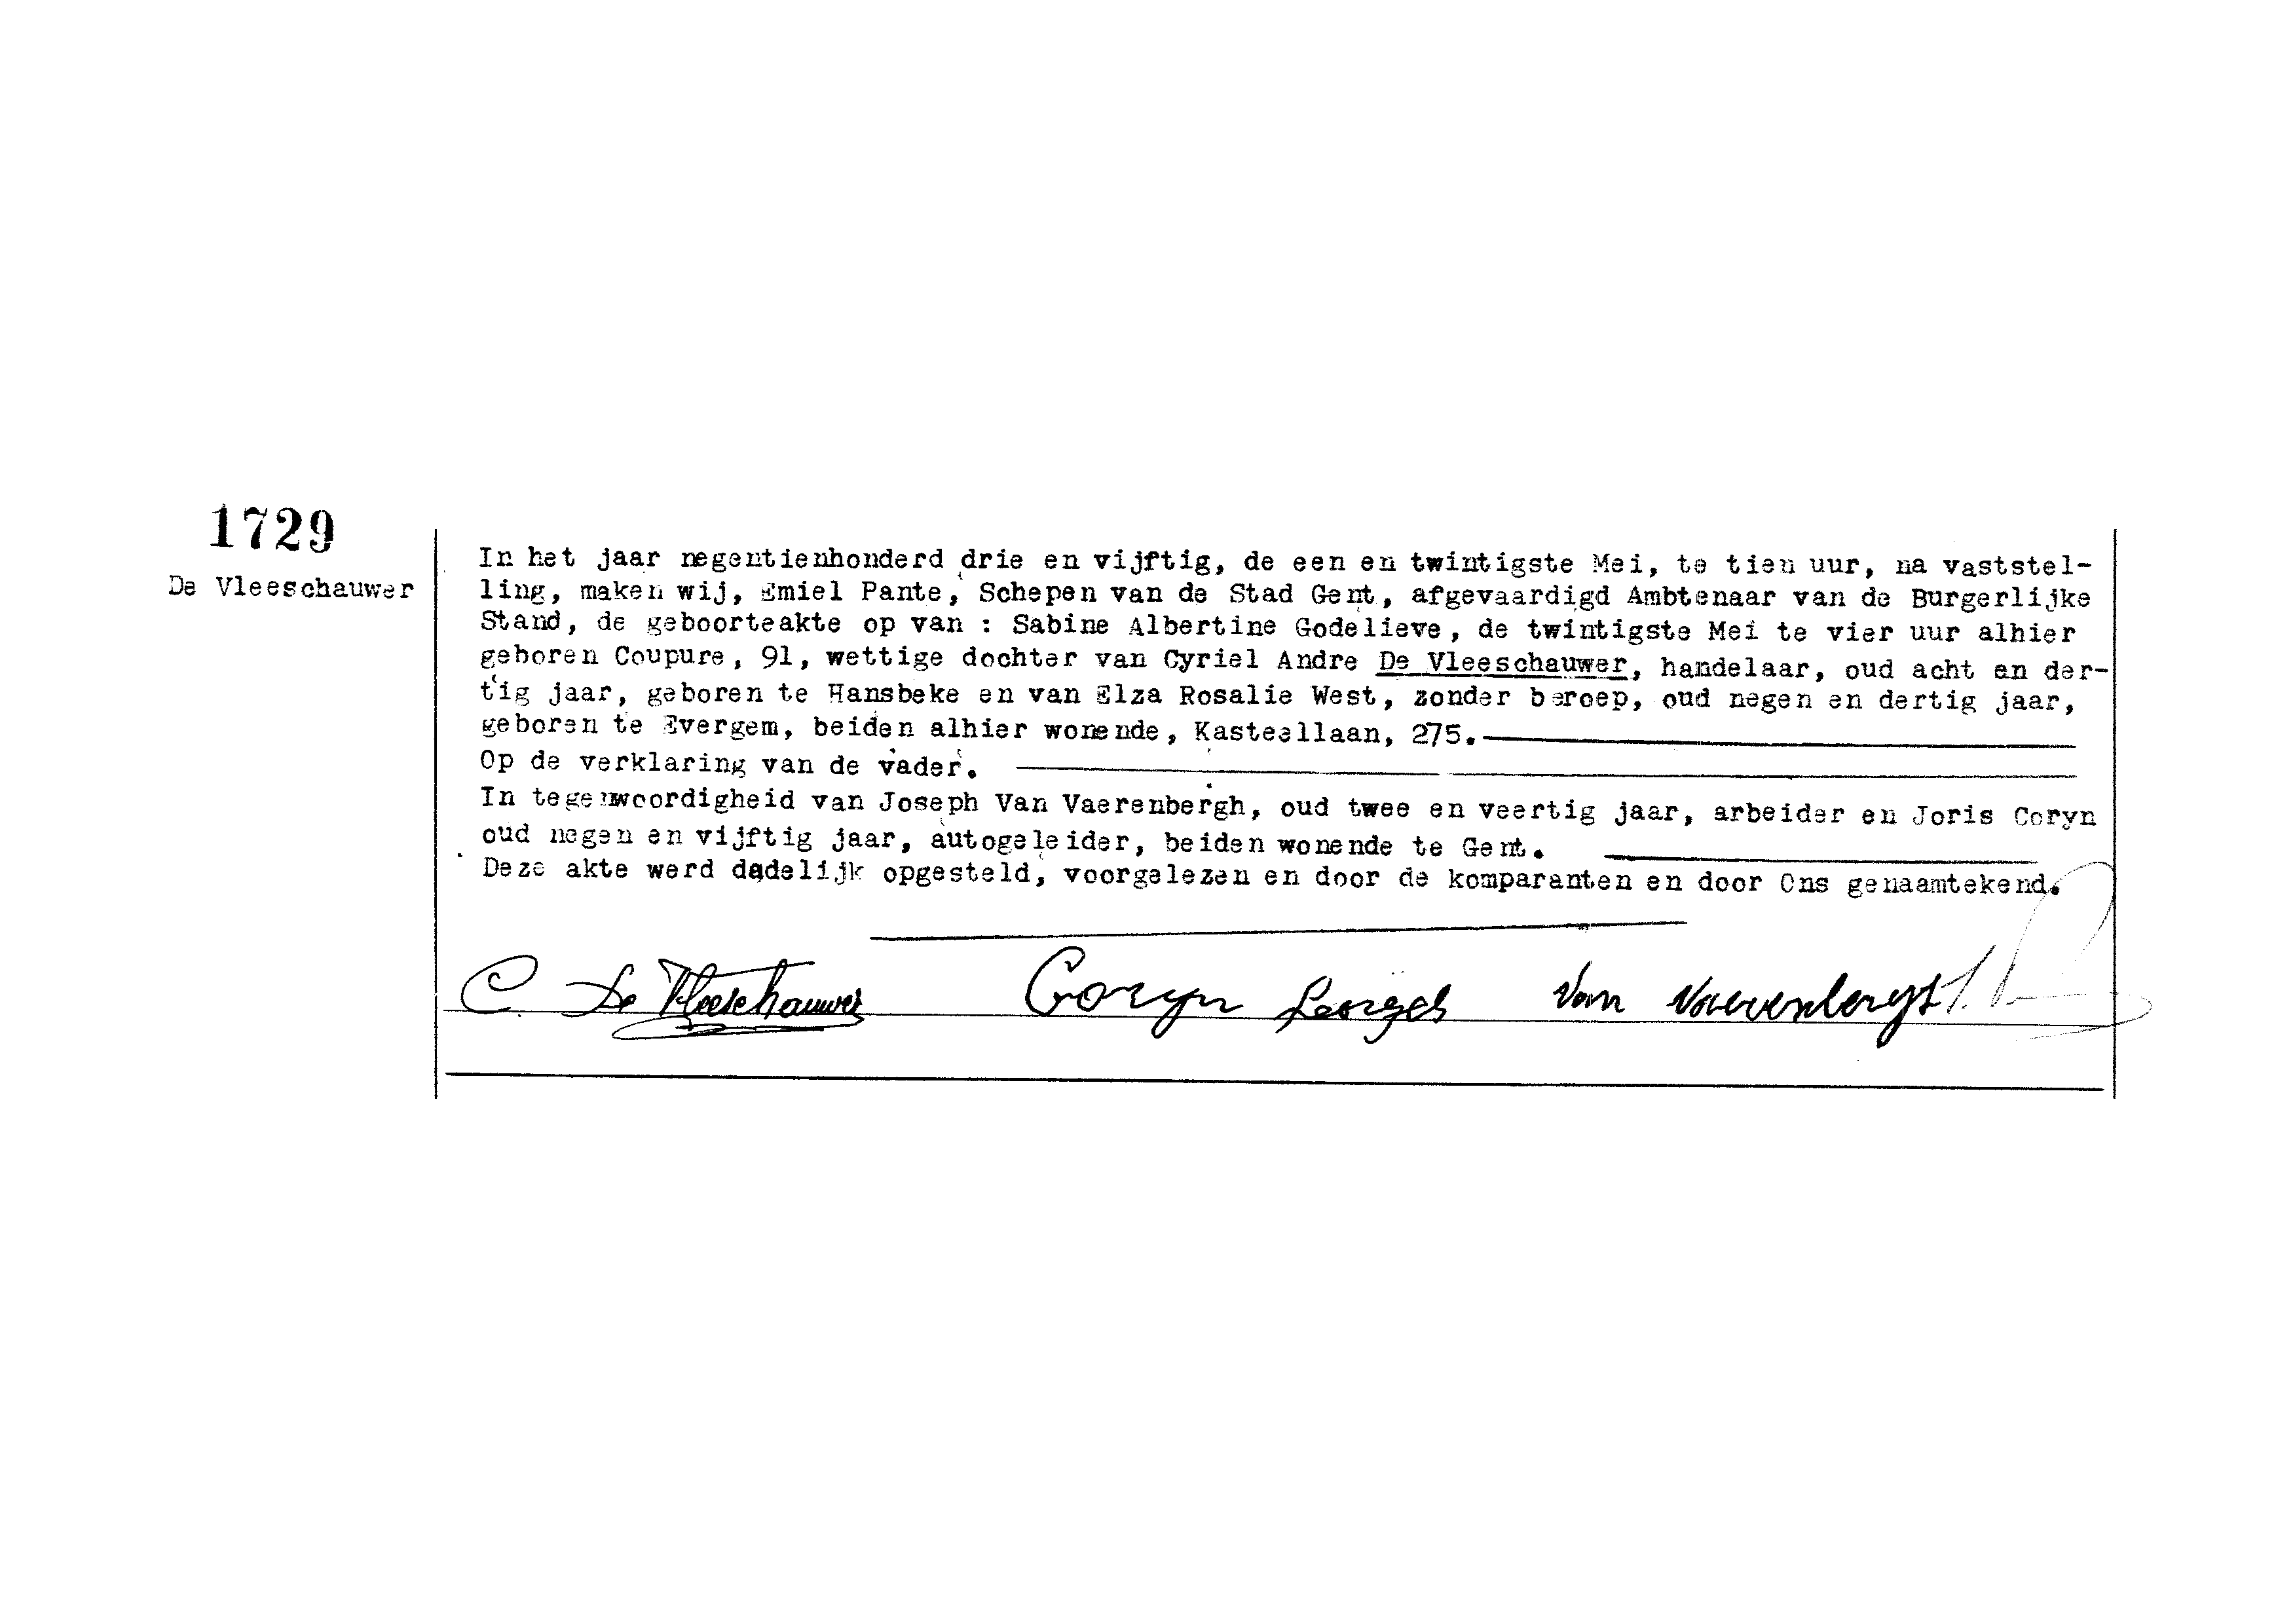 1729
De Vleeschauwer
In het jaar negentienhonderd drie en vijftig, de een en twintigste Mei, te tien uur, na vaststel-
ling, maken wij, Emiel Pante, Schepen van de Stad Gent, afgevaardigd Ambtenaar van de Burgerlijke
Stand, de geboorteakte op van : Sabine Albertine Godelieve, de twintigste Mei te vier uur alhier
geboren Coupure, 91, wettige dochter van Cyriel Andre De Vleeschauwer, handelaar, oud acht en der-
tig jaar, geboren te Hansbeke en van Elza Rosalie West, zonder beroep, oud negen en dertig jaar,
geboren te Evergem, beiden alhier wonende, Kasteellaan, 275.
Op de verklaring van de vader.
In tegenwoordigheid van Joseph Van Vaerenbergh, oud twee en veertig jaar, arbeider en Joris Coryn
oud negen en vijftig jaar, autogeleider, beiden wonende te Gent.
Deze akte werd dadelijk opgesteld, voorgelezen en door de komparanten en door Ons genaamtekend.
C. De Vleeschauwer Coryn Georges Van